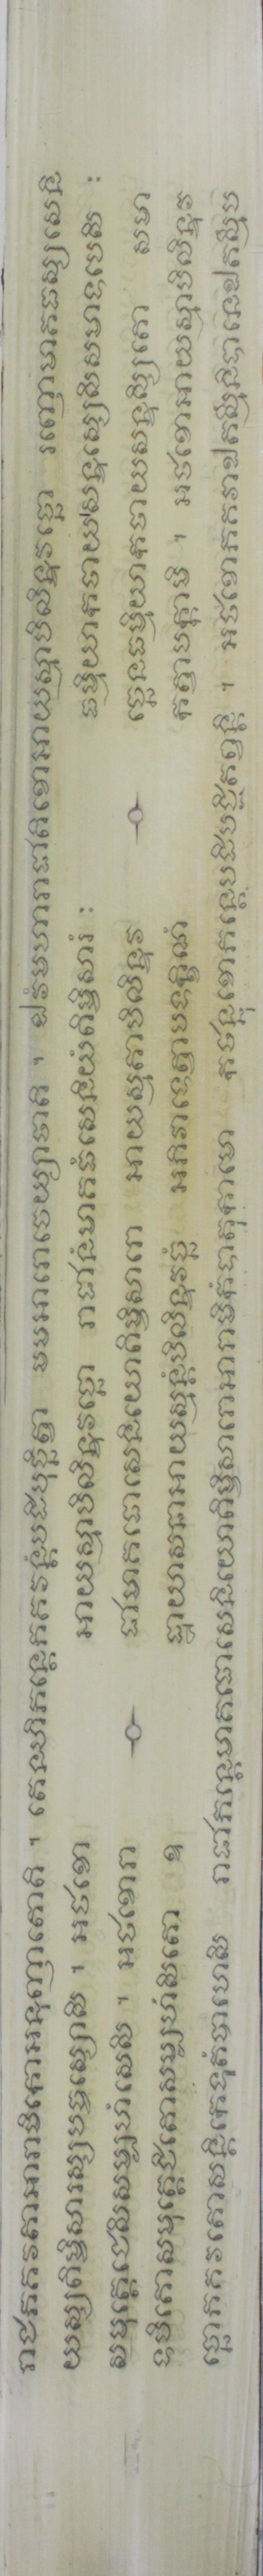 រាជភគវតាអារាមិកោអនុញ្ញាតោតិ ។ តេនហិភន្តេភគវន្តំបដិបុច្ឆិត្វា មមអារោចេយ្យាថាតិ ។ ឯវំមហារាជាតិខោអាយស្មាបិលិន្ទវច្ឆោ រញ្ញោមាគធស្សសេនិ
យស្សពិម្ពិសារស្សបច្ចស្សោសិ ។ អថខោ អាយស្មាបិលិន្ទវច្ឆោ រាជានំមាគធំសេនិយំពិម្ពិសារំ ៈ ធម្មិយាកថាយសន្ទស្សេសិសមាទបេសិ ៈ
សមុត្តេជេសិសម្បហំសេសិ ។ អថខោរា ជាមាគធោសេនិយោពិម្ពិសារោ អាយស្មតាបិលិន្ទវ ច្ឆេនធម្មិយាកថាយសន្ទស្សិតោ សមា
ទបិតោសមុត្តេជិតោសម្បហំសិតោ ឧ ដ្ឋាយាសនាអាយស្មន្តំបិលិន្ទវច្ឆំ អភិវាទេត្វាបទក្ខិណំ កត្វាបក្កាមិ ។ អថខោអាយស្មាបិលិន្ទវ
ច្ឆោភគវតោសន្តិកេទុតំបាហេសិ រាជាភន្តេមាគធោសេនិយោពិម្ពិសារោអារាមិកំទាតុកាមោ កថន្នុខោភន្តេបដិបជ្ជិតព្វន្តិ ។ អថខោភគវាឯតស្មឹនិទានេឯតស្មឹប